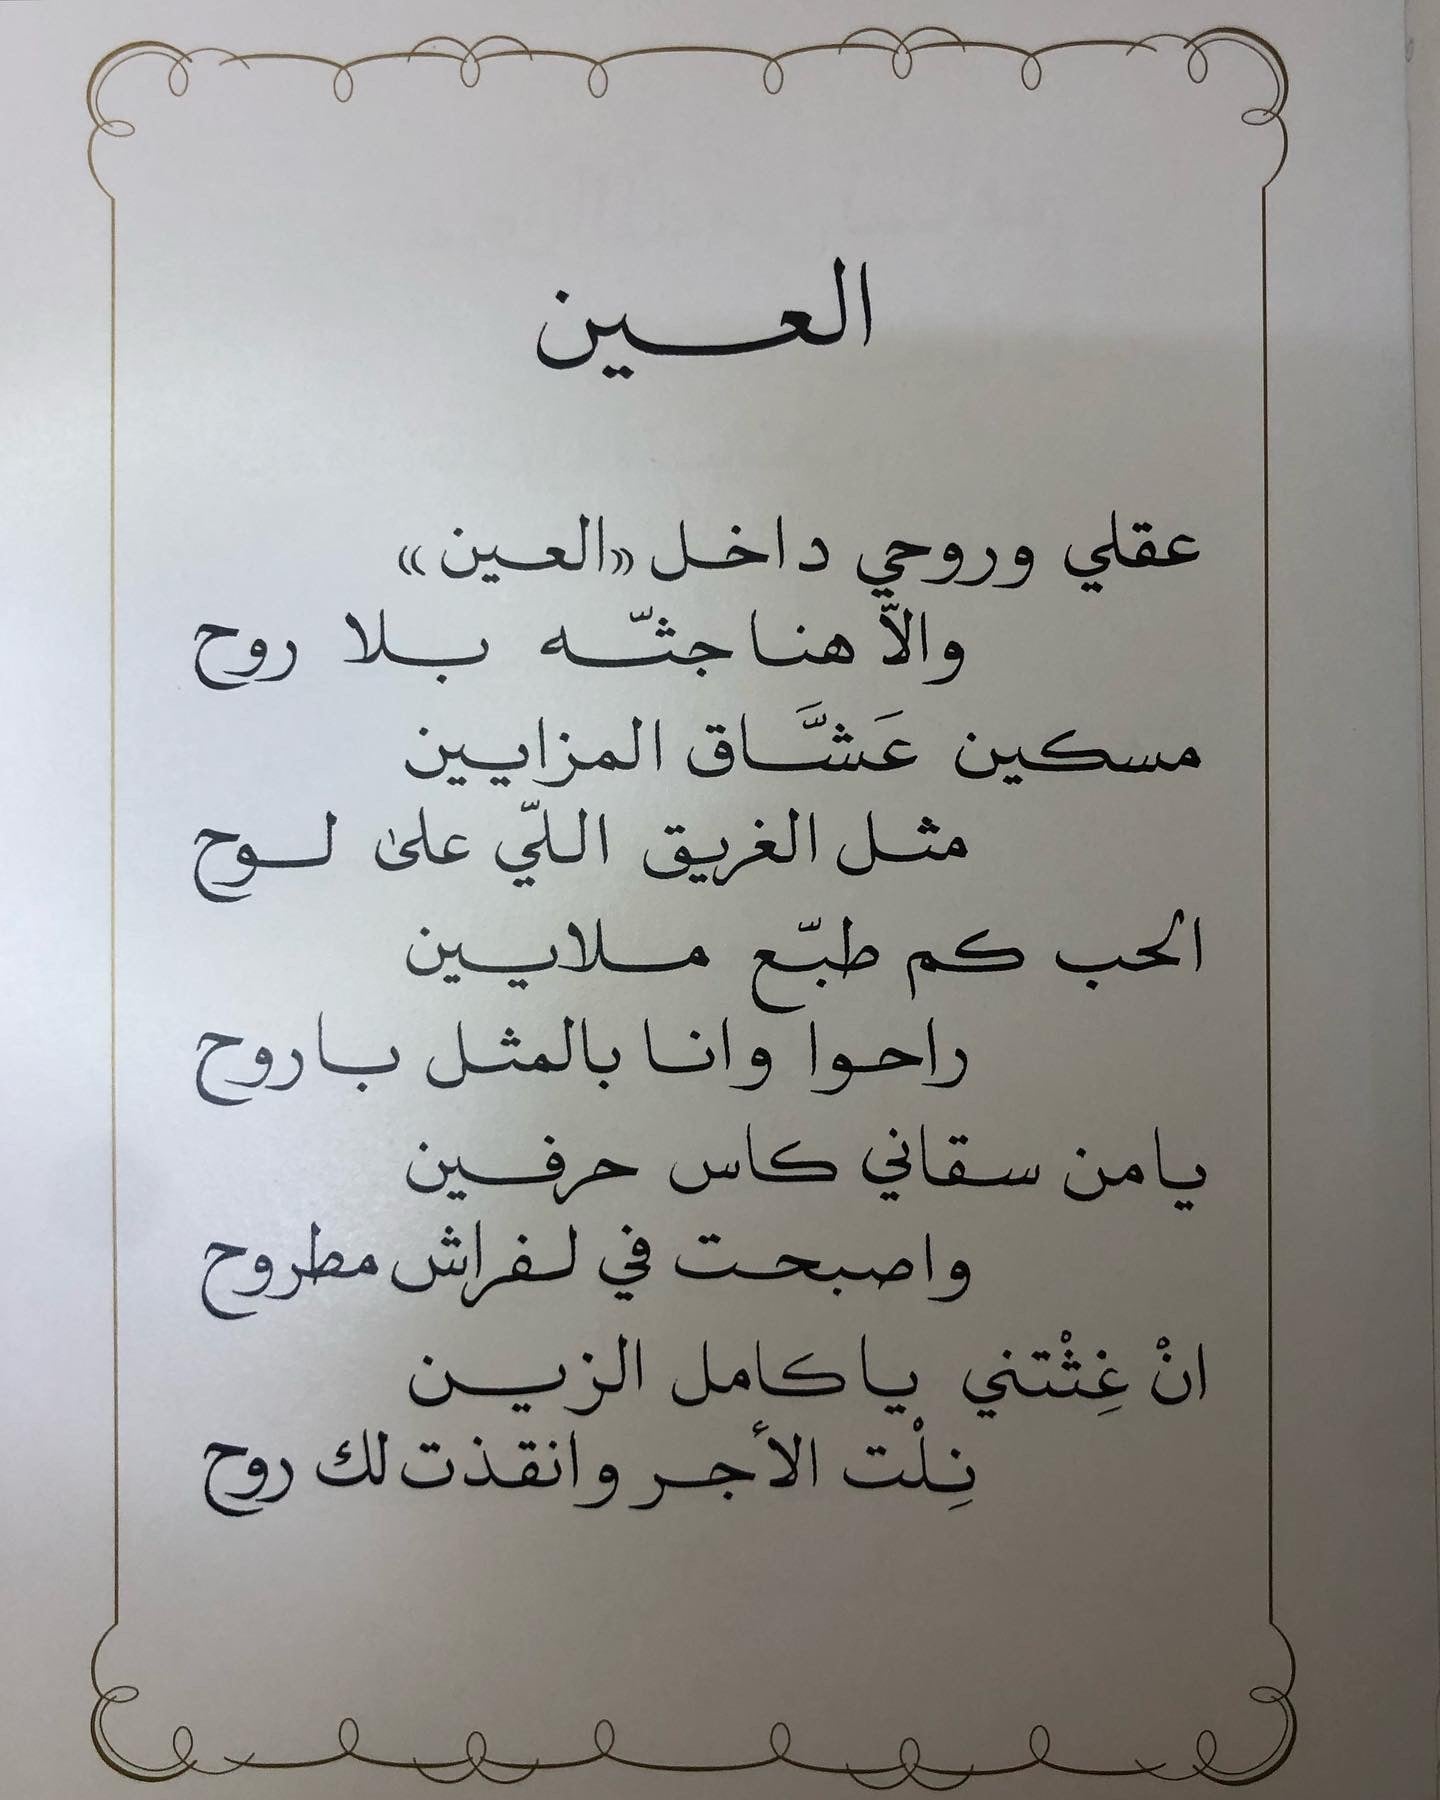 العين
عقلي وروحي داخل «العين»
والاّ هنا جثّه بلا روح
مسكين عَشَّاق المزايين
مثل الغريق اللّي على لوح
الحب كم طبّع ملايين
راحوا وانا بالمثل باروح
يا من سقاني كاس حرفين
واصبحت في لفراش مطروح
انْ غِثْتني يا كامل الزين
نِلْت الأجر وانقذت لك روح